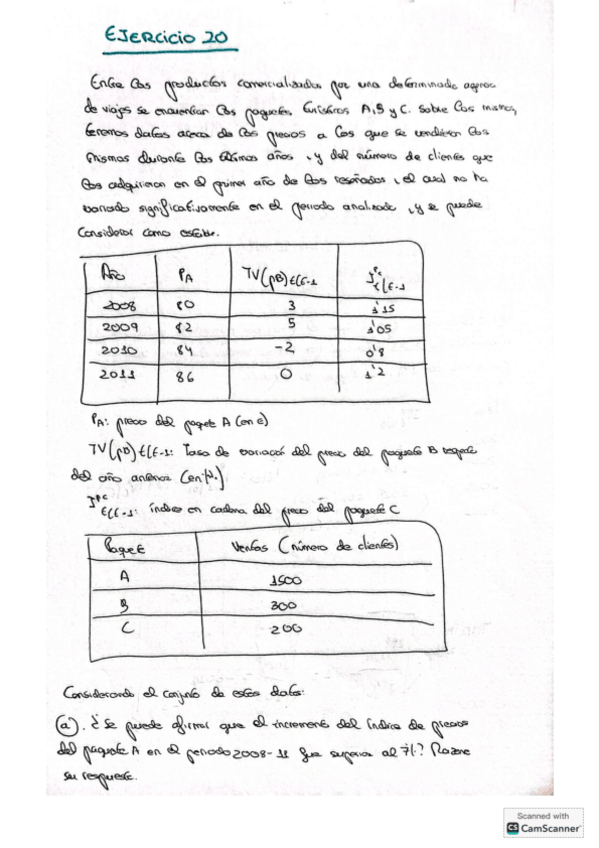 EJERCICIO 20
Entre los productos comercializados por una determinada agencia
de viajes se encuentran los paquetes turísticos A, B y C. Sobre los mismos,
tenemos datos acerca de los precios a los que se vendieron los
mismos durante los últimos años, y del número de clientes que
los adquirieron en el primer año de los reseñados, el cual no ha
variado significativamente en el periodo analizado, y se puede
considerar como estable.
Año PA TV(pB)t/t-1 I^Pc t/t-1
2008 80 3 1'15
2009 82 5 1'05
2010 84 -2 0'8
2011 86 0 1'2
PA: precio del paquete A (en €)
TV(pB)t/t-1: Tasa de variación del precio del paquete B respecto
del año anterior (en %)
I^Pc t/t-1: índice en cadena del precio del paquete C
Paquete Ventas (número de clientes)
A 1500
B 300
C 200
Considerando el conjunto de estos datos:
(a). ¿Se puede afirmar que el incremento del índice de precios
del paquete A en el periodo 2008-11 fue superior al 7%? Razone
su respuesta.
Scanned with
CS CamScanner